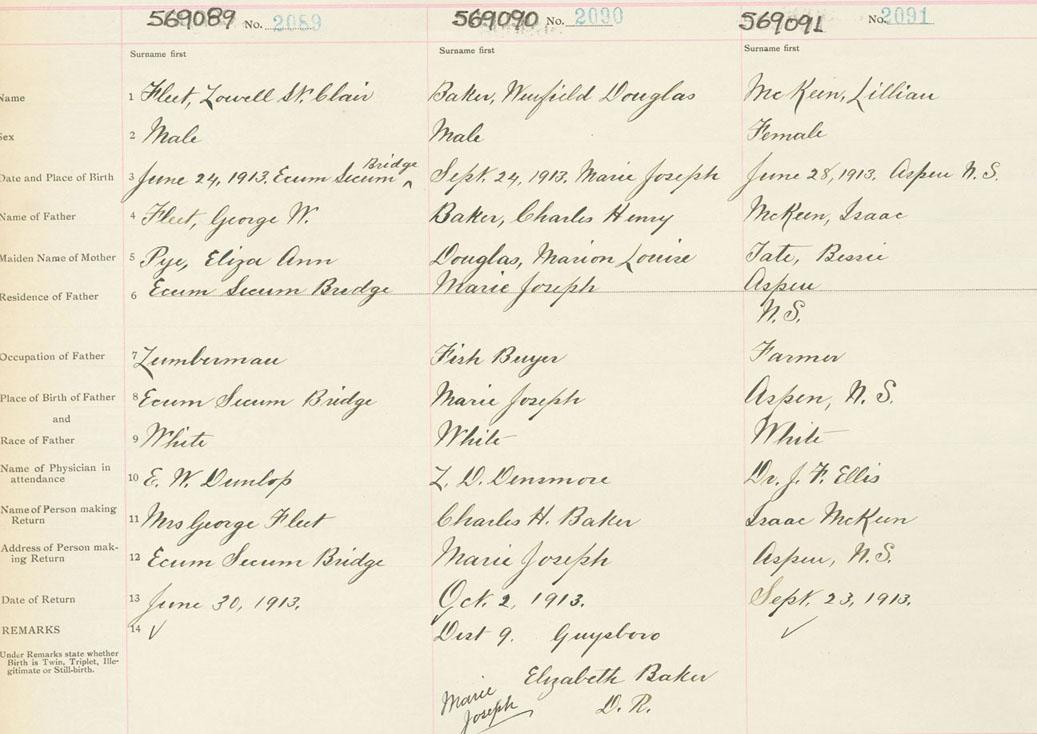 569089 No. 2089 569090 No. 2090 569091 No. 2091
Surname first Surname first Surname first
Name 1 Fleet, Lowell St. Clair Baker, Winfield Douglas McKeen, Lillian
Sex 2 Male Male Female
Bridge
Date and Place of Birth 3 June 24, 1913. Ecum Secum ^ Sept. 24, 1913. Marie Joseph June 28, 1913. Aspen N.S.
Name of Father 4 Fleet, George W. Baker, Charles Henry McKeen, Isaac
Maiden Name of Mother 5 Pye, Eliza Ann Douglas, Marion Louise Tate, Bessie
Residence of Father 6 Ecum Secum Bridge Marie Joseph Aspen
N.S.
Occupation of Father 7 Lumberman Fish Buyer Farmer
Place of Birth of Father 8 Ecum Secum Bridge Marie Joseph Aspen, N.S.
and
Race of Father 9 White White White
Name of Physician in
attendance 10 E. W. Dunlop L. D. Densmore Dr. J. F. Ellis
Name of Person making
Return 11 Mrs George Fleet Charles H. Baker Isaac McKeen
Address of Person mak-
ing Return 12 Ecum Secum Bridge Marie Joseph Aspen, N.S.
Date of Return 13 June 30, 1913. Oct. 2, 1913. Sept. 23, 1913.
REMARKS 14 ✓ Dist 9. Guysboro ✓
Under Remarks state whether
Birth is Twin, Triplet, Ille-
gitimate or Still-birth.
Elizabeth Baker
D. R.
Marie
Joseph